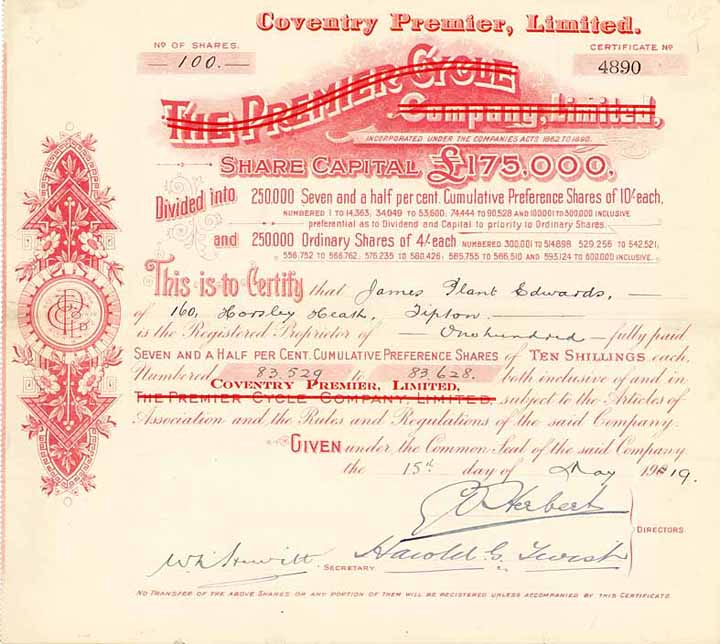 Coventry Premier, Limited.
No OF SHARES.
100.
CERTIFICATE No
4890
THE PREMIER CYCLE
Company, Limited,
INCORPORATED UNDER THE COMPANIES ACTS 1862 TO 1890.
SHARE CAPITAL £175,000,
Divided into 250,000 Seven and a half per cent. Cumulative Preference Shares of 10/- each,
NUMBERED 1 TO 14,363, 34,049 TO 53,600, 74,444 TO 90,528 AND 100,001 TO 300,000 INCLUSIVE
preferential as to Dividend and Capital to priority to Ordinary Shares
and 250,000 Ordinary Shares of 4/- each NUMBERED 300,001 TO 514,898 529,256 TO 542,521,
556,752 TO 566,762, 576,235 TO 580,426, 585,755 TO 586,510 AND 593,124 TO 600,000 INCLUSIVE.
This is to Certify that James Plant Edwards,
of 160, Horsley Heath, Tipton
is the Registered Proprietor of Onehundred fully paid
SEVEN AND A HALF PER CENT. CUMULATIVE PREFERENCE SHARES OF TEN SHILLINGS each,
Numbered 83,529 to 83,628. both inclusive of and in
COVENTRY PREMIER, LIMITED,
THE PREMIER CYCLE COMPANY, LIMITED, subject to the Articles of
Association and the Rules and Regulations of the said Company.
GIVEN under the Common Seal of the said Company
the 15th day of May 1919.
Herbert
DIRECTORS
Harold G. Twist
Hewitt
SECRETARY
NO TRANSFER OF THE ABOVE SHARES OR ANY PORTION OF THEM WILL BE REGISTERED UNLESS ACCOMPANIED BY THIS CERTIFICATE.